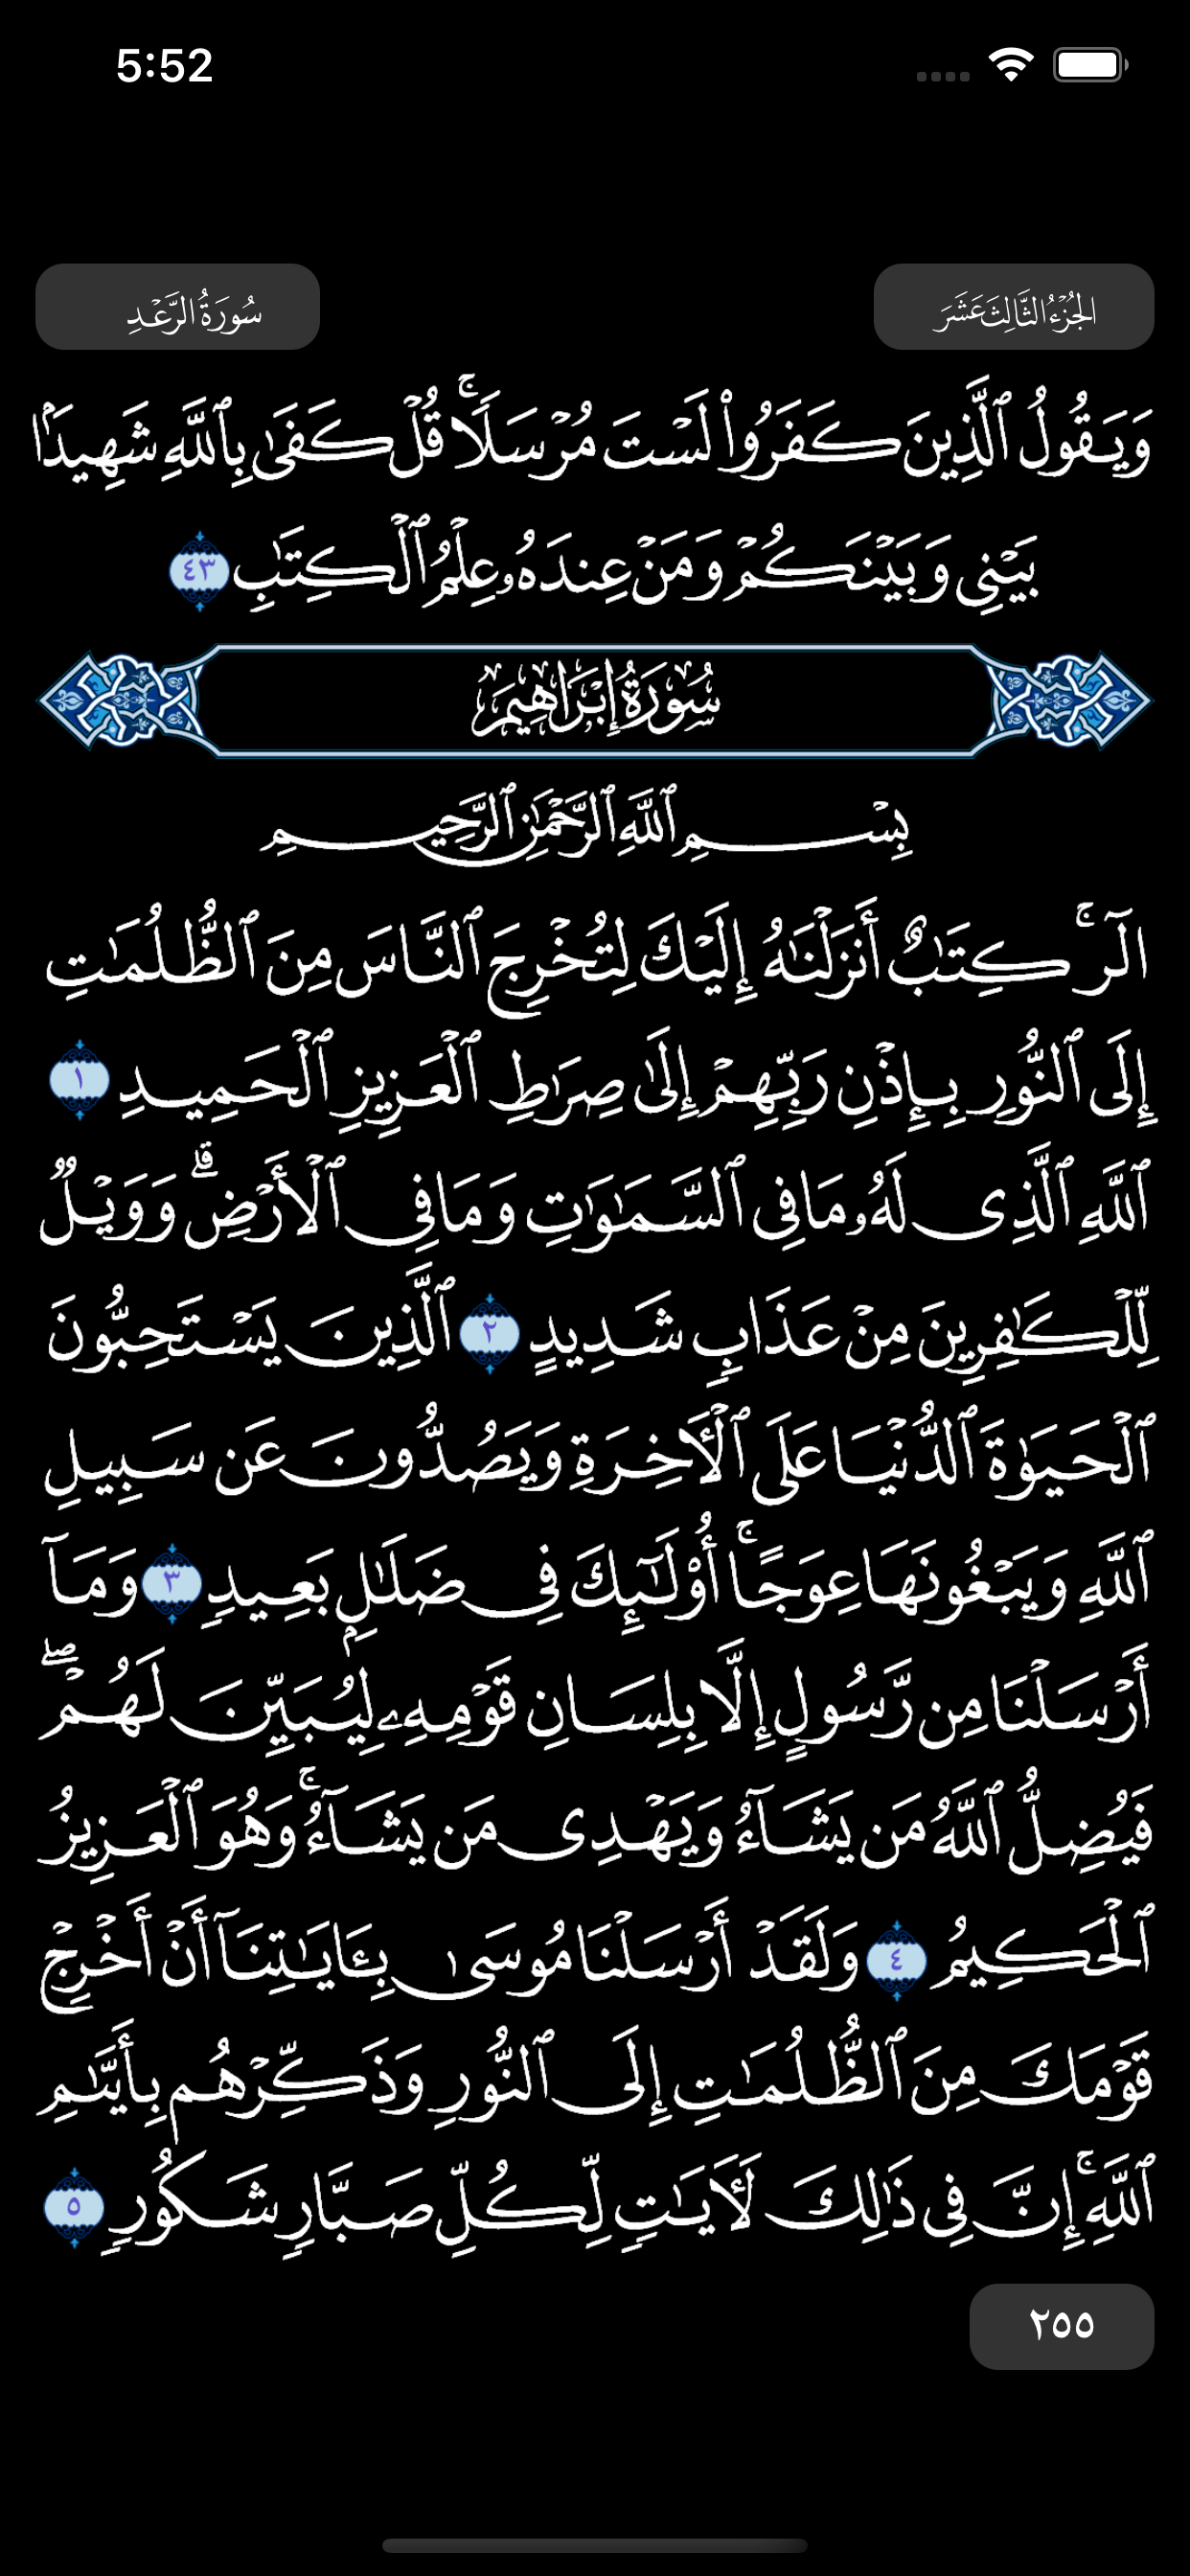 5:52
الجُزْءُ الثَّالِثَ عَشَرَ
سُورَةُ الرَّعْدِ
وَيَقُولُ ٱلَّذِينَ كَفَرُوا۟ لَسْتَ مُرْسَلًا ۚ قُلْ كَفَىٰ بِٱللَّهِ شَهِيدًۢا
بَيْنِى وَبَيْنَكُمْ وَمَنْ عِندَهُۥ عِلْمُ ٱلْكِتَـٰبِ ٤٣
سُورَةُ إِبْرَاهِيمَ
بِسْمِ ٱللَّهِ ٱلرَّحْمَـٰنِ ٱلرَّحِيمِ
الٓر ۚ كِتَـٰبٌ أَنزَلْنَـٰهُ إِلَيْكَ لِتُخْرِجَ ٱلنَّاسَ مِنَ ٱلظُّلُمَـٰتِ
إِلَى ٱلنُّورِ بِإِذْنِ رَبِّهِمْ إِلَىٰ صِرَٰطِ ٱلْعَزِيزِ ٱلْحَمِيدِ ١
ٱللَّهِ ٱلَّذِى لَهُۥ مَا فِى ٱلسَّمَـٰوَٰتِ وَمَا فِى ٱلْأَرْضِ ۗ وَوَيْلٌ
لِّلْكَـٰفِرِينَ مِنْ عَذَابٍ شَدِيدٍ ٢ ٱلَّذِينَ يَسْتَحِبُّونَ
ٱلْحَيَوٰةَ ٱلدُّنْيَا عَلَى ٱلْـَٔاخِرَةِ وَيَصُدُّونَ عَن سَبِيلِ
ٱللَّهِ وَيَبْغُونَهَا عِوَجًا ۚ أُو۟لَـٰٓئِكَ فِى ضَلَـٰلٍۭ بَعِيدٍ ٣ وَمَآ
أَرْسَلْنَا مِن رَّسُولٍ إِلَّا بِلِسَانِ قَوْمِهِۦ لِيُبَيِّنَ لَهُمْ ۖ
فَيُضِلُّ ٱللَّهُ مَن يَشَآءُ وَيَهْدِى مَن يَشَآءُ ۚ وَهُوَ ٱلْعَزِيزُ
ٱلْحَكِيمُ ٤ وَلَقَدْ أَرْسَلْنَا مُوسَىٰ بِـَٔايَـٰتِنَآ أَنْ أَخْرِجْ
قَوْمَكَ مِنَ ٱلظُّلُمَـٰتِ إِلَى ٱلنُّورِ وَذَكِّرْهُم بِأَيَّىٰمِ
ٱللَّهِ ۚ إِنَّ فِى ذَٰلِكَ لَـَٔايَـٰتٍ لِّكُلِّ صَبَّارٍ شَكُورٍ ٥
٢٥٥